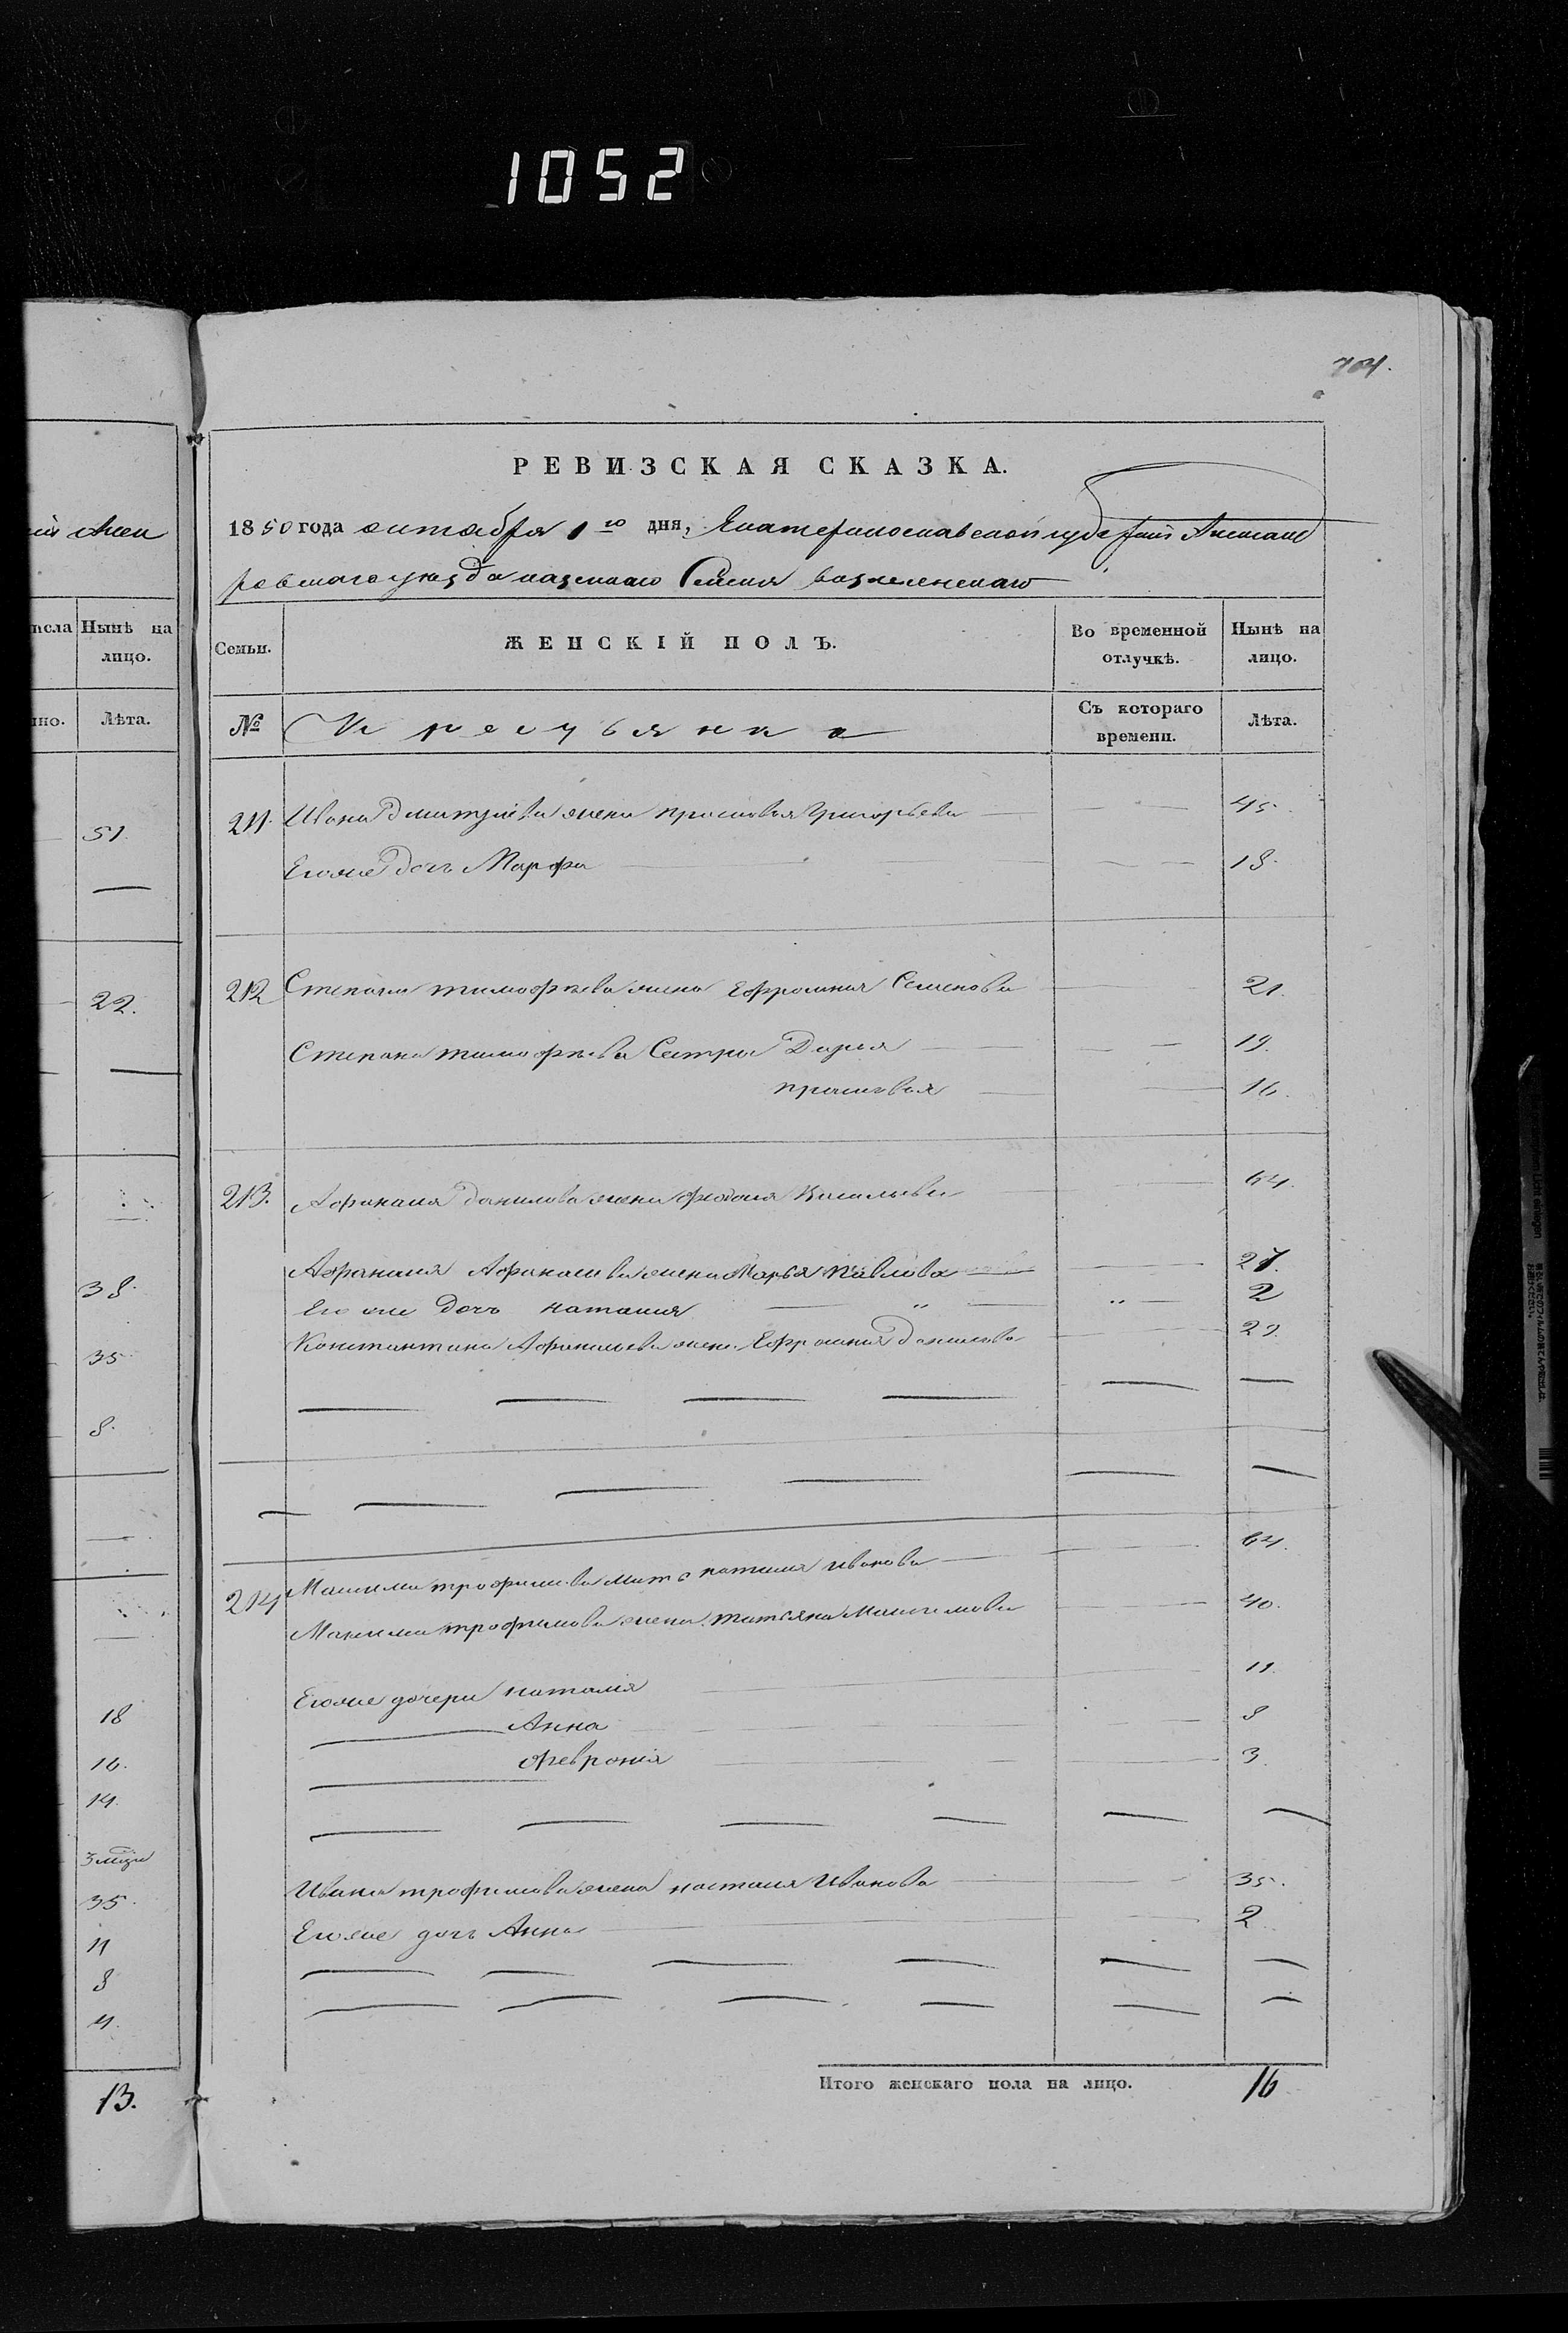 1052
704.
РЕВИЗСКАЯ СКАЗКА.
1850 года октября 1го дня, Екатеринославской губернии Александ
ровскаго уезда казеннаго Селения вознесенскаго
Семьи. ЖЕНСКІЙ ПОЛЪ. Во временной отлучкѣ. Нынѣ на лицо.
№ Крестьянка Съ котораго времени. Лѣта.
211. Ивана Дмитриева жена прасковья Григорьева 45.
Егоже Дочь Марфа 18.
212 Степана тимофеева жена Ефросиния Семенова 21.
Степана тимофеева Сестра Дарья 19.
прасковья 16.
213. Афанасия Данилова жена феодосия Васильева 64.
Афанасия Афанасиева жена Марья Павлова 27.
Его же Дочь наталия 2
Константина Афанасьева жена Ефросиния Данилова 29.
214 Максима трофимова мать наталия иванова 64.
Максима трофимова жена татьяна Максимова 40.
Егоже дочери наталия 11.
Анна 8
феврония 3.
Ивана трофимова жена настасия Иванова 35.
Егоже дочь Анна 2
Итого женскаго пола на лицо. 16
Нынѣ на
лицо.
Лѣта.
51.
22.
38.
35
8.
18
16.
14.
35.
11
8
4.
13.